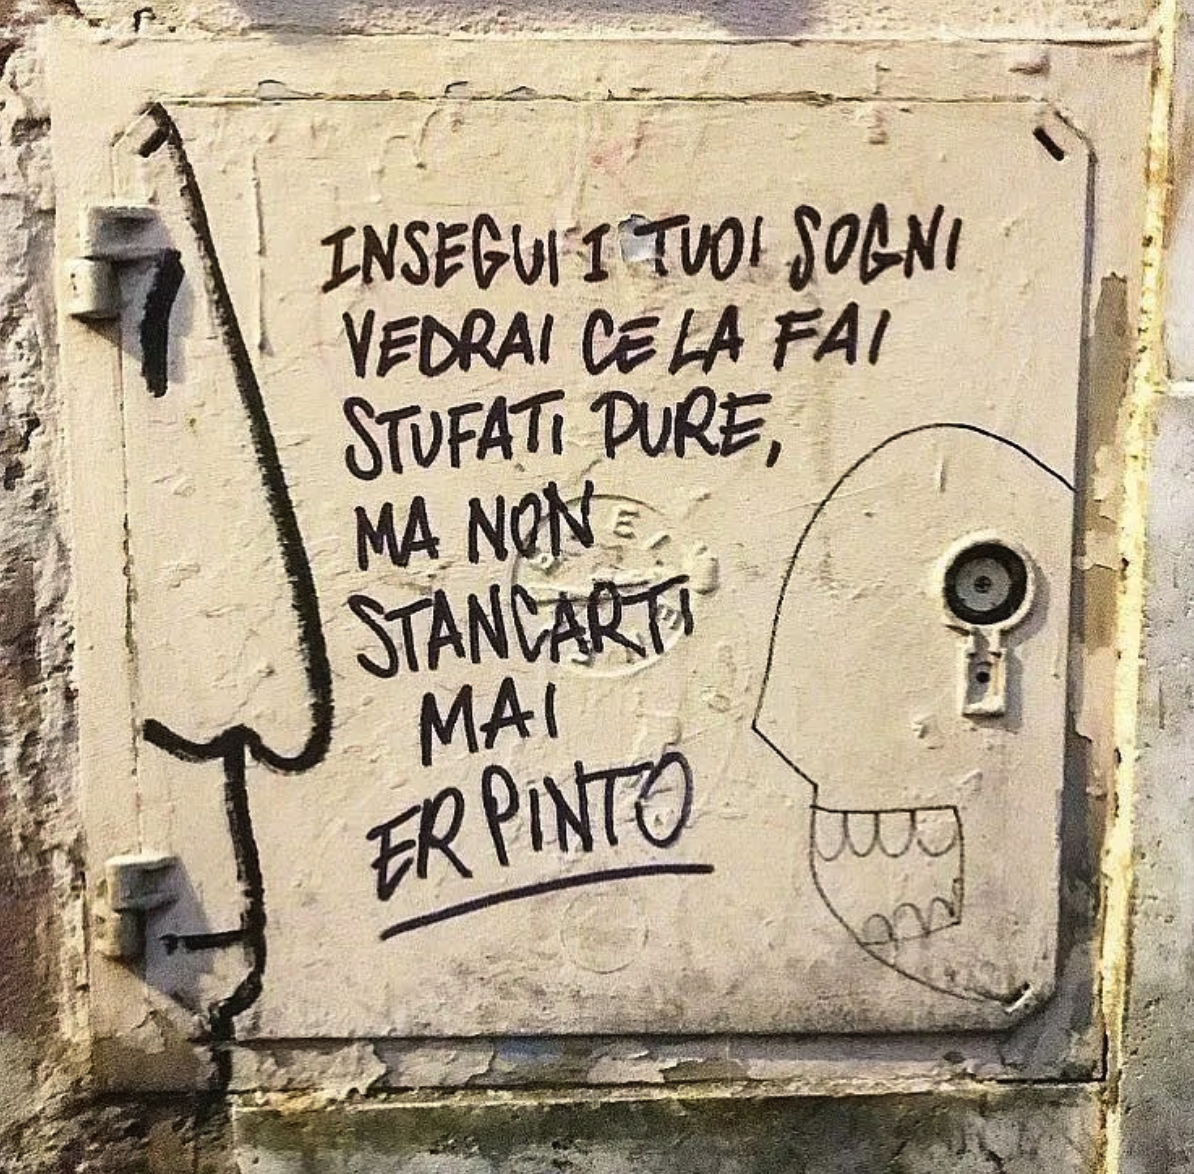 INSEGUI I TUOI SOGNI
VEDRAI CE LA FAI
STUFATI PURE,
MA NON
STANCARTI
MAI
ER PINTO